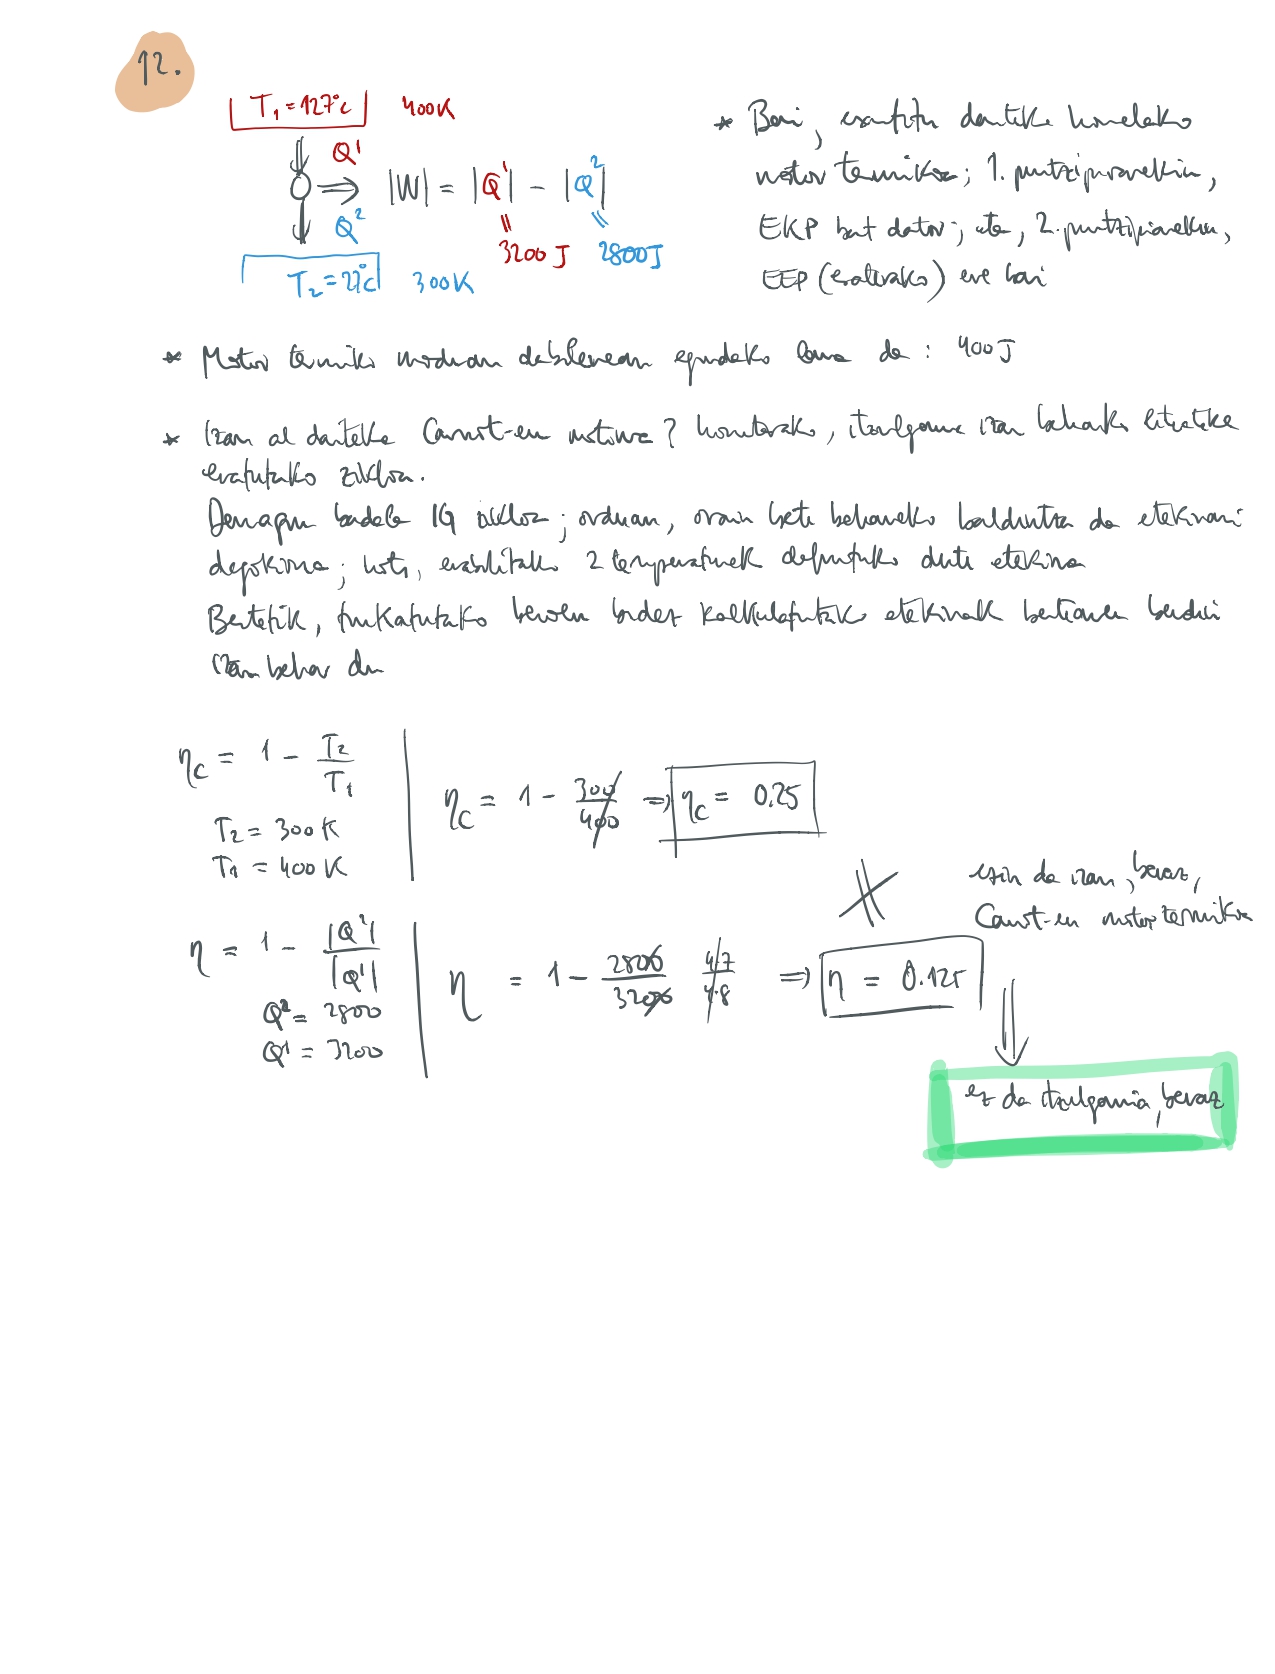 12.
T₁ = 127°C 400K
Q¹
|W| = |Q¹| - |Q²|
Q²
3200 J 2800J
T₂ = 27°C 300K
* Bai, eraiki daiteke honelako
motor termikoa; 1. printzipioarekin,
EKP bat dator; eta, 2. printzipioarekin,
EEP (eraikitako) ere bai
* Motor termiko moduan dabilenean egindako lana da : 400J
* Izan al daiteke Carnot-en motorra? horretarako, itzulgarria izan beharko litzateke
zikloa.
Demagun badela IG zikloa; orduan, orain bete beharreko baldintza da etekinari
dagokiona; hots, erabilitako 2 temperaturek definituko dute etekina
Bestetik, trukatutako beroen bidez kalkulatutako etekinak berdin
izan behar du
η_C = 1 - T₂/T₁
T₂ = 300K
T₁ = 400K
η_C = 1 - 300/400 ⇒ η_C = 0.25
ezin da izan, beraz,
Carnot-en motor termikoa
η = 1 - |Q²|/|Q¹|
Q² = 2800
Q¹ = 3200
η = 1 - 2800/3200 4·7/4·8 ⇒ η = 0.125
ez da itzulgarria, beraz